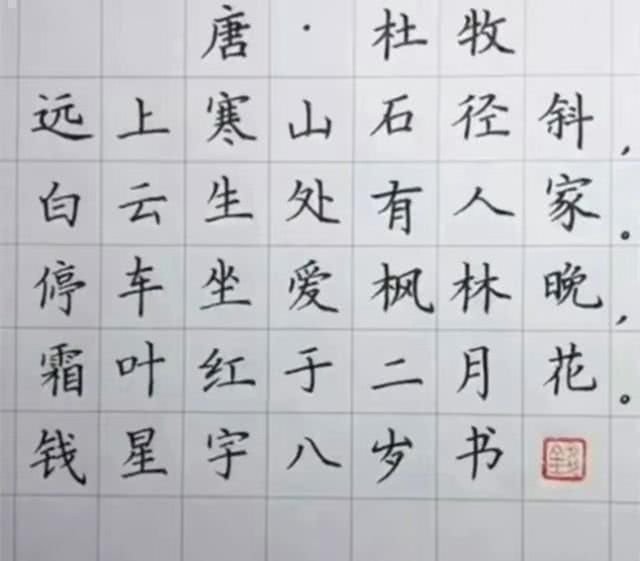 唐·杜牧
远上寒山石径斜,
白云生处有人家。
停车坐爱枫林晚,
霜叶红于二月花。
钱星宇八岁书